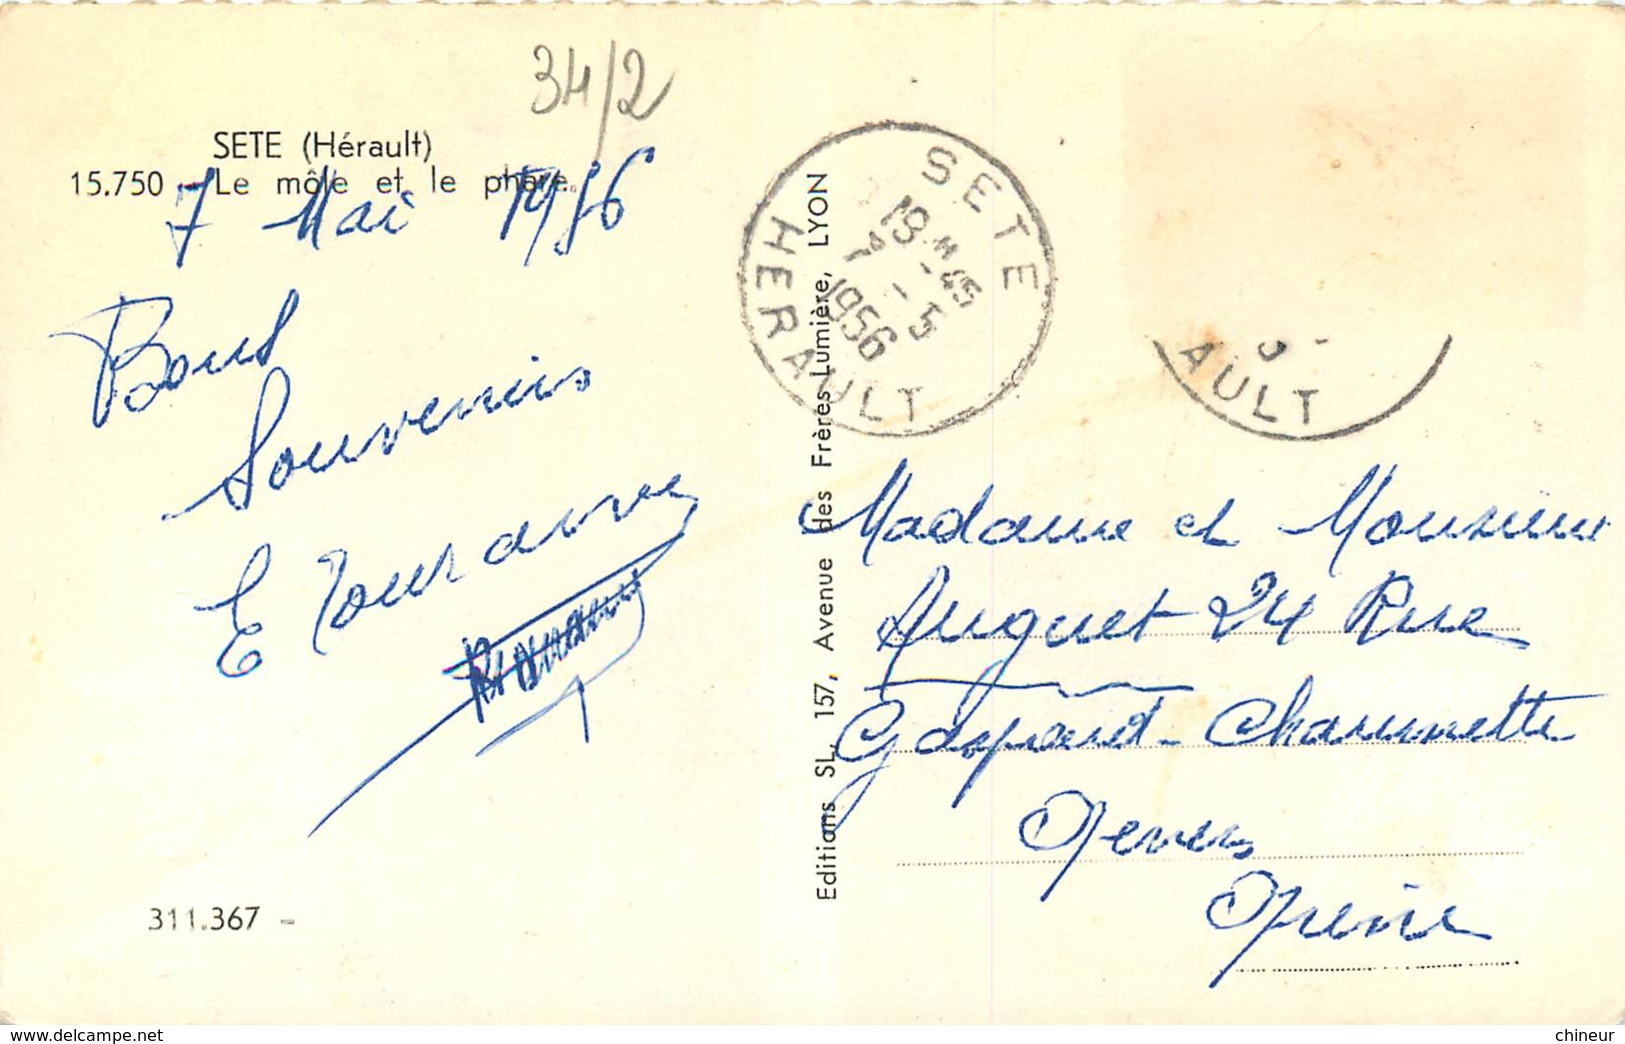 34/2
SETE (Hérault)
15.750 - Le môle et le phare.
7 Mai 1956
Bons
Souvenirs
E
311.367 -
Editions SL, 157, Avenue des Frères Lumière, LYON
SETE
HERAULT
19 H 45
7 - 5
1956
AULT
Madame et Monsieur
Auguet 24 Rue
Gaspard - Charmette
chineur